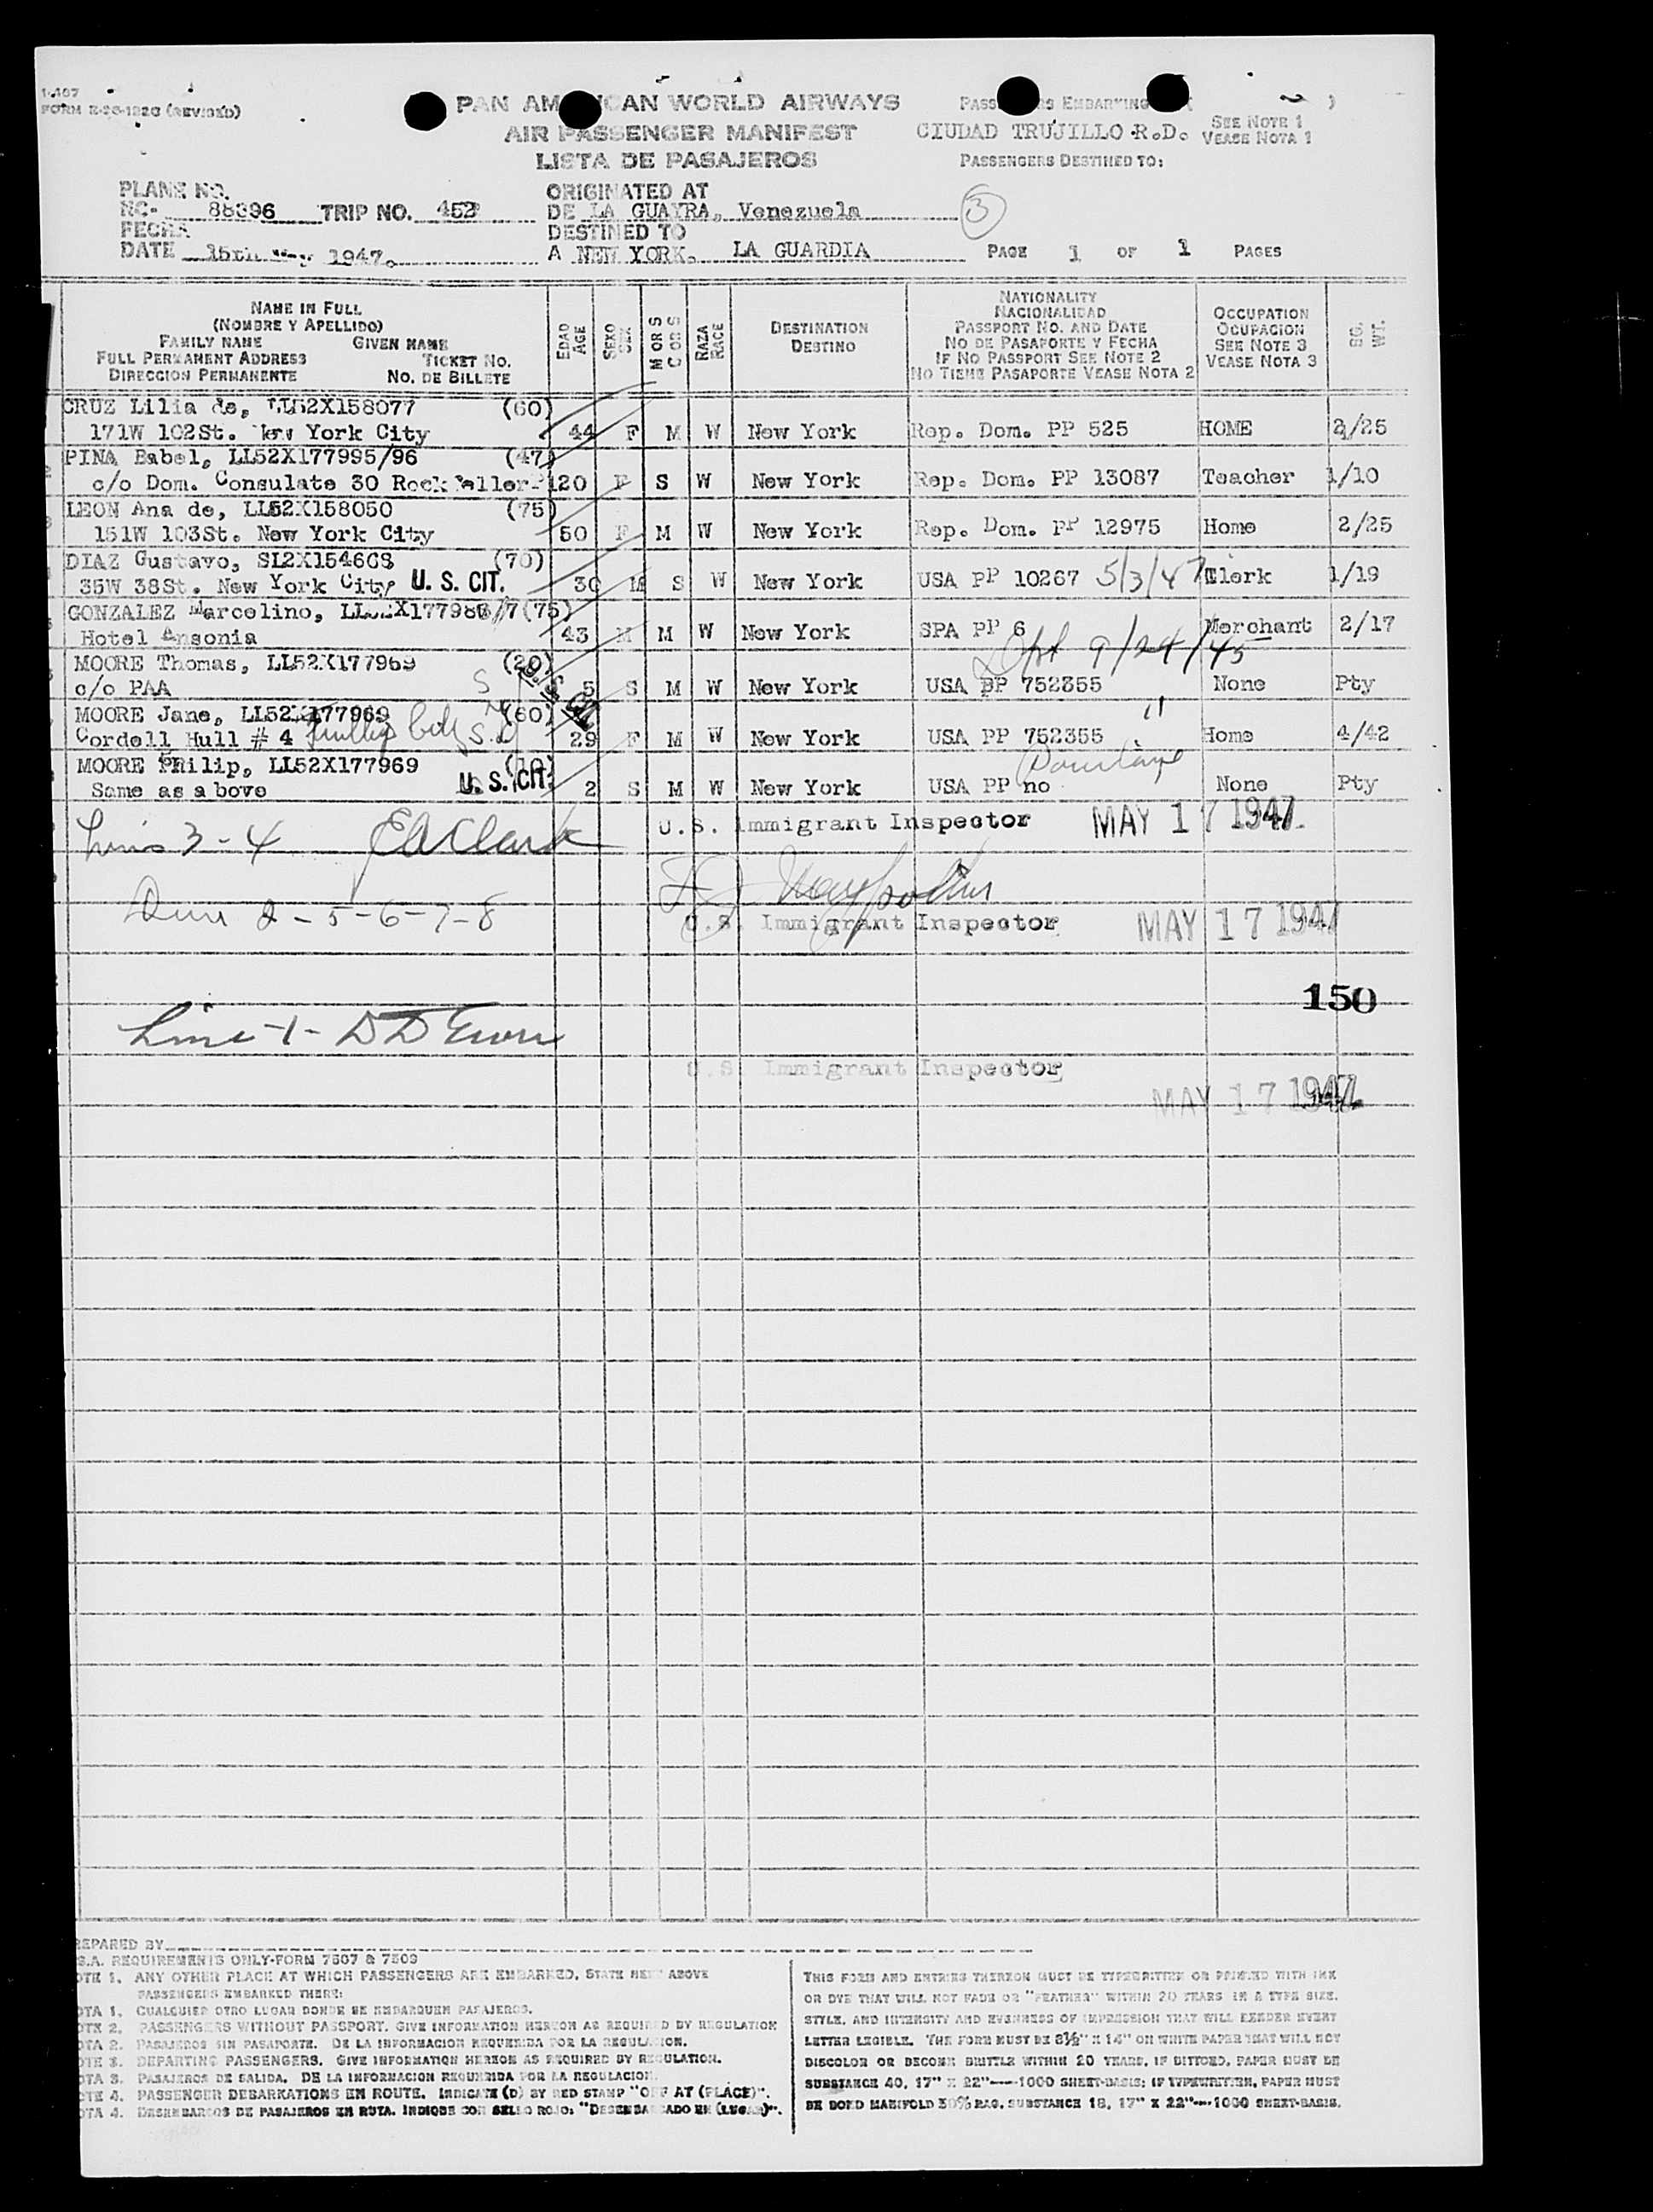 I-407
FORM E-26-122G (REVISED)
PAN AM CAN WORLD AIRWAYS
AIR PASSENGER MANIFEST
LISTA DE PASAJEROS
PASS RS EMBARKING
CIUDAD TRUJILLO R.D.
SEE NOTE 1
VEASE NOTA 1
PASSENGERS DESTINED TO:
PLANE NO.
NC- 88396 TRIP NO. 452
FECHA
DATE 15th May 1947.
ORIGINATED AT
DE LA GUAYRA, Venezuela
DESTINED TO
A NEW YORK. LA GUARDIA
3
PAGE 1 OF 1 PAGES
NAME IN FULL
(NOMBRE Y APELLIDO)
FAMILY NAME GIVEN NAME
FULL PERMANENT ADDRESS TICKET NO.
DIRECCION PERMANENTE NO. DE BILLETE
EDAD AGE
SEXO SEX
M OR S C OR S
RAZA RACE
DESTINATION
DESTINO
NATIONALITY
NACIONALIDAD
PASSPORT NO. AND DATE
NO DE PASAPORTE Y FECHA
IF NO PASSPORT SEE NOTE 2
NO TIENE PASAPORTE VEASE NOTA 2
OCCUPATION
OCUPACION
SEE NOTE 3
VEASE NOTA 3
BG. WT.
CRUZ Lilia de, LL52X158077 (60)
171W 102St. New York City 44 F M W New York Rep. Dom. PP 525 HOME 2/25
PINA Babel, LL52X177995/96 (47)
c/o Dom. Consulate 30 Rockfeller P1 20 F S W New York Rep. Dom. PP 13087 Teacher 1/10
LEON Ana de, LL52X158050 (75)
151W 103St. New York City 50 F M W New York Rep. Dom. PP 12975 Home 2/25
DIAZ Gustavo, SL2X154608 (70)
35W 38St. New York City U. S. CIT. 30 M S W New York USA PP 10267 5/3/47 Clerk 1/19
GONZALEZ Marcelino, (75)
Hotel Ansonia 43 M M W New York SPA PP 6 Merchant 2/17
MOORE Thomas, LL52X177969 (20) Dpt 9/24/45
c/o PAA S U. S. CIT. 5 S M W New York USA PP 752355 None Pty
MOORE Jane, LL52X177969 (60) "
Cordell Hull # 4 29 F M W New York USA PP 752355 Home 4/42
MOORE Philip, LL52X177969 (10)
Same as above U. S. CIT. 2 S M W New York USA PP no None Pty
3 - 4 EA Clark U.S. Immigrant Inspector MAY 17 1947
2 - 5 - 6 - 7 - 8 U.S. Immigrant Inspector MAY 17 1947
150
Line -1-
U.S. Immigrant Inspector
MAY 17 1947
REPARED BY
S.A. REQUIREMENTS ONLY-FORM 7507 & 7509
OTE 1. ANY OTHER PLACE AT WHICH PASSENGERS ARE EMBARKED, STATE NEXT ABOVE
PASSENGERS EMBARKED THERE:
OTA 1. CUALQUIER OTRO LUGAR DONDE SE EMBARQUEN PASAJEROS.
OTE 2. PASSENGERS WITHOUT PASSPORT. GIVE INFORMATION HEREON AS REQUIRED BY REGULATION
OTA 2. PASAJEROS SIN PASAPORTE. DE LA INFORMACION REQUERIDA POR LA REGULACION.
OTE 3. DEPARTING PASSENGERS. GIVE INFORMATION HEREON AS REQUIRED BY REGULATION.
OTA 3. PASAJEROS DE SALIDA. DE LA INFORMACION REQUERIDA POR LA REGULACION.
OTE 4. PASSENGER DEBARKATIONS EN ROUTE. INDICATE (D) BY RED STAMP "OFF AT (PLACE)".
OTA 4. DESEMBARCOS DE PASAJEROS EN RUTA. INDIQUE CON SELLO ROJO: "DESEMBARCADO EN (LUGAR)".
THIS FORM AND ENTRIES THEREON MUST BE TYPEWRITTEN OR PRINTED WITH INK
OR DYE THAT WILL NOT FADE OR "FEATHER" WITHIN 20 YEARS IN A TYPE SIZE,
STYLE, AND INTENSITY AND EVENNESS OF IMPRESSION THAT WILL RENDER EVERY
LETTER LEGIBLE. THE FORM MUST BE 8½" X 14" ON WHITE PAPER THAT WILL NOT
DISCOLOR OR BECOME BRITTLE WITHIN 20 YEARS. IF DITTOED, PAPER MUST BE
SUBSTANCE 40, 17" X 22"----1000 SHEET-BASIS; IF TYPEWRITTEN, PAPER MUST
BE BOND MANIFOLD 50% RAG, SUBSTANCE 18, 17" X 22"----1000 SHEET-BASIS.